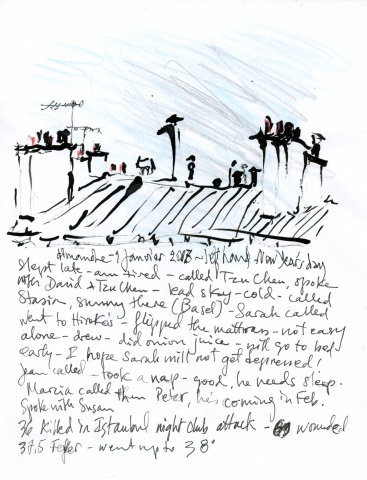 dimanche - 1 Janvier 2017 - left hand New Year's day
slept late - am tired - called Tzu Chen, spoke
with David & Tzu Chen - lead sky - cold - called
Stasin, sunny there (Basel) - Sarah called
went to Hiroko's - flipped the mattress - not easy
alone - drew - did onion juice - will go to bed
early - I hope Sarah will not get depressed!
Jean called - took a nap - good, he needs sleep.
Marcia called then Peter, he's coming in Feb.
Spoke with Susan
36 killed in Istanbul night club attack - 69 wounded
37.5 Fever - went up to 38°